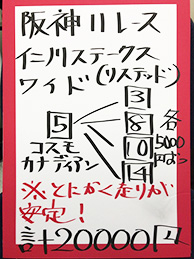 阪神11レース
仁川ステークス
ワイド(リステッド)
5
3
8
10
14
各5000円ずつ
コスモカナディアン
※とにかく走りが安定!
計20000円